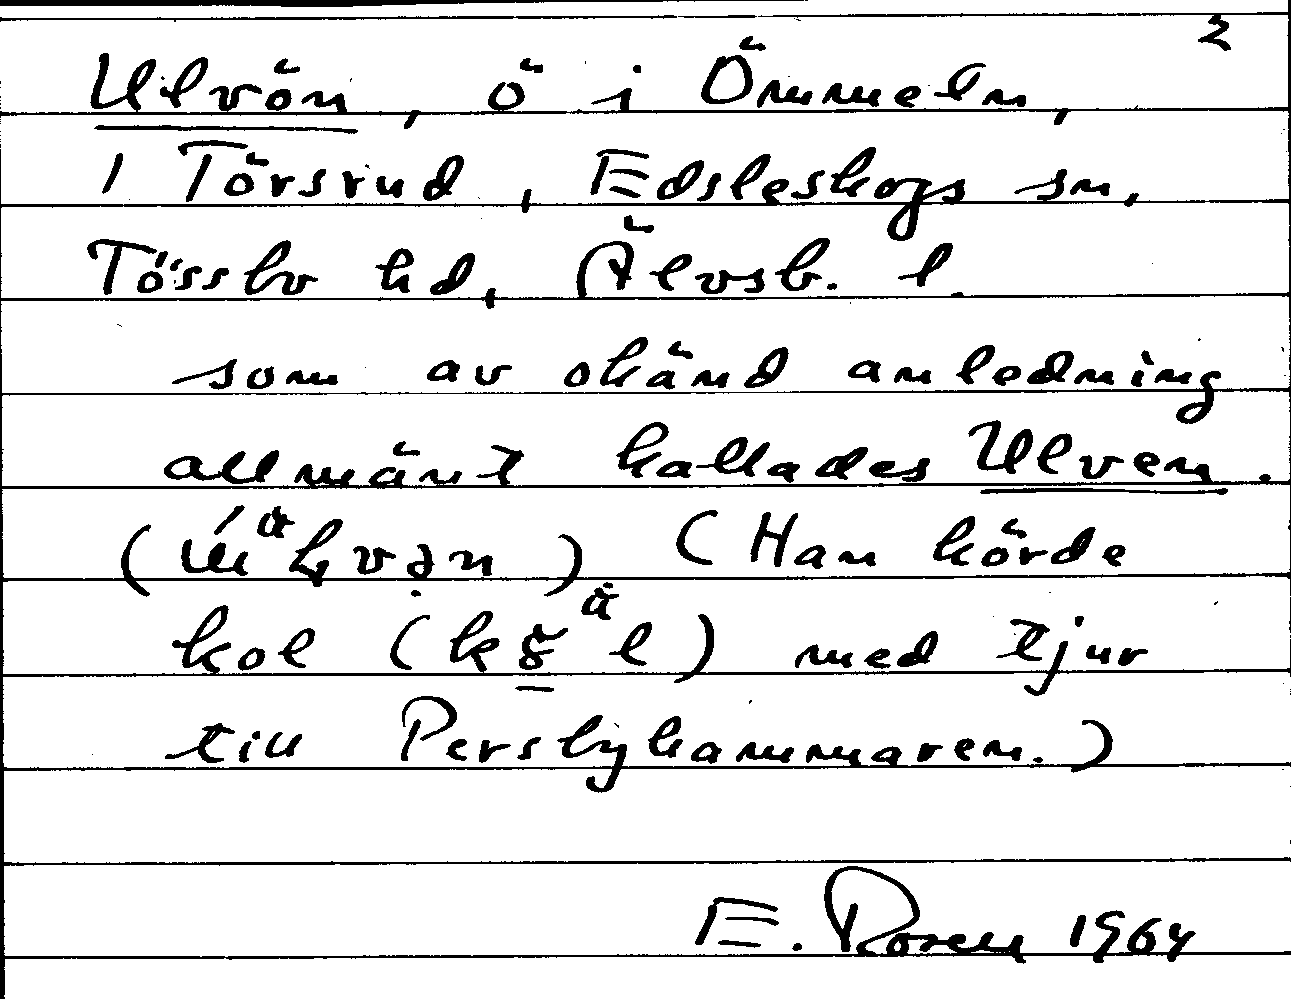 2
Ulvön, ö i Ömmeln,
i Törsrud, Edsleskogs sn,
Tössbo hd, Älvsb. l.
som av okänd anledning
allmänt kallades Ulven.
(Han körde
kol med tjur
till Persbyhammaren.)
E. Rosen 1964